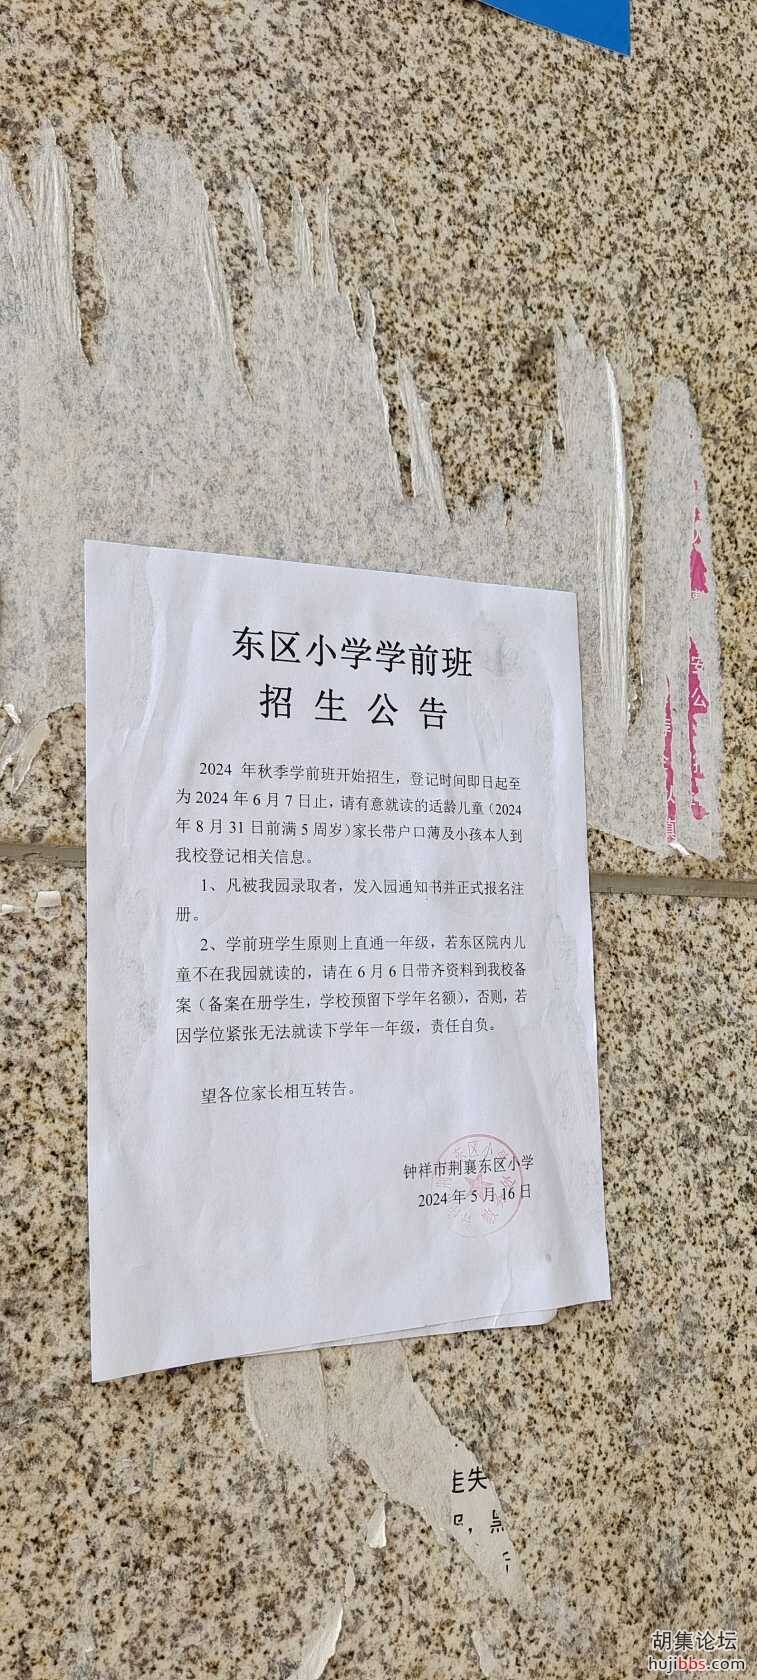 东区小学学前班
招生公告
2024 年秋季学前班开始招生，登记时间即日起至
为 2024 年 6 月 7 日止，请有意就读的适龄儿童（2024
年 8 月 31 日前满 5 周岁）家长带户口薄及小孩本人到
我校登记相关信息。
1、凡被我园录取者，发入园通知书并正式报名注
册。
2、学前班学生原则上直通一年级，若东区院内儿
童不在我园就读的，请在 6 月 6 日带齐资料到我校备
案（备案在册学生，学校预留下学年名额），否则，若
因学位紧张无法就读下学年一年级，责任自负。
望各位家长相互转告。
钟祥市荆襄东区小学
2024 年 5 月 16 日
安
公
失
胡集论坛
hujibbs.com